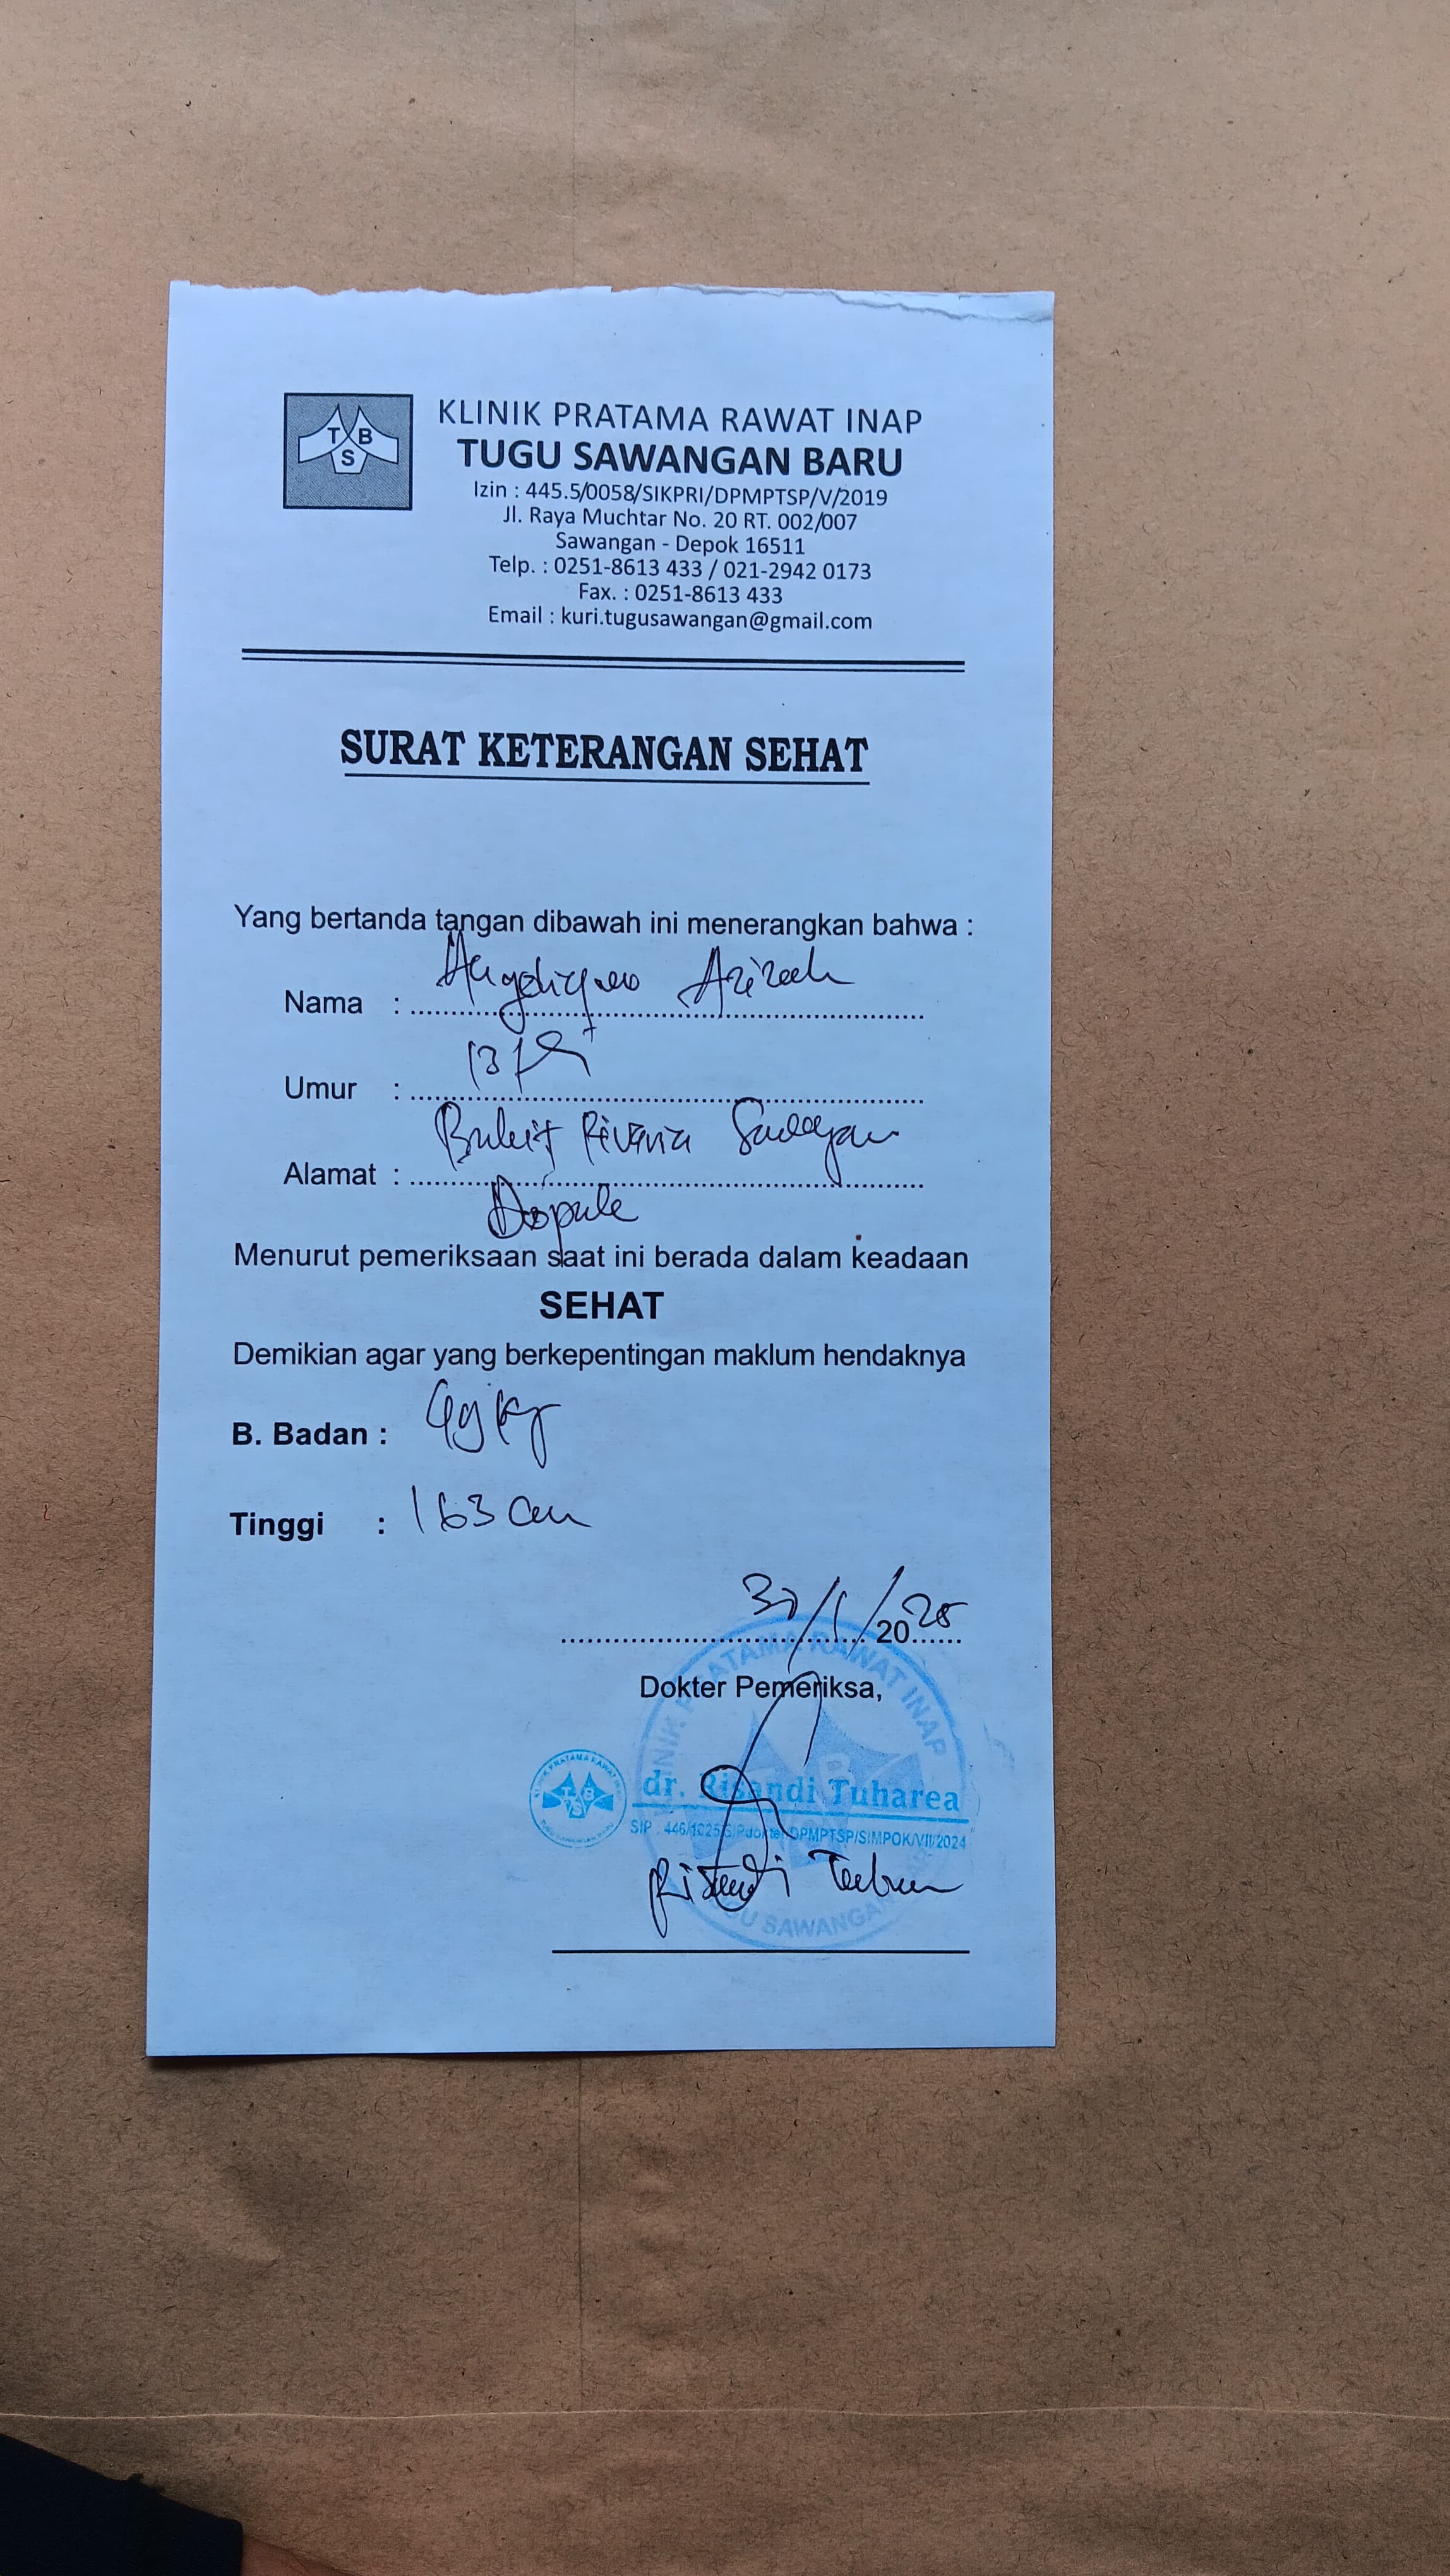 T B S
KLINIK PRATAMA RAWAT INAP
TUGU SAWANGAN BARU
Izin : 445.5/0058/SIKPRI/DPMPTSP/V/2019
Jl. Raya Muchtar No. 20 RT. 002/007
Sawangan - Depok 16511
Telp. : 0251-8613 433 / 021-2942 0173
Fax. : 0251-8613 433
Email : kuri.tugusawangan@gmail.com
SURAT KETERANGAN SEHAT
Yang bertanda tangan dibawah ini menerangkan bahwa :
Nama : Azizah
Umur : 13
Alamat : Bukit Rivaria
Menurut pemeriksaan saat ini berada dalam keadaan
SEHAT
Demikian agar yang berkepentingan maklum hendaknya
B. Badan : 49 kg
Tinggi : 163 cm
2025
Dokter Pemeriksa,
KLINIK PRATAMA RAWAT INAP
dr. Risandi Tuharea
DPMPTSP/SIMPOK/VII/2024
TUGU SAWANGAN